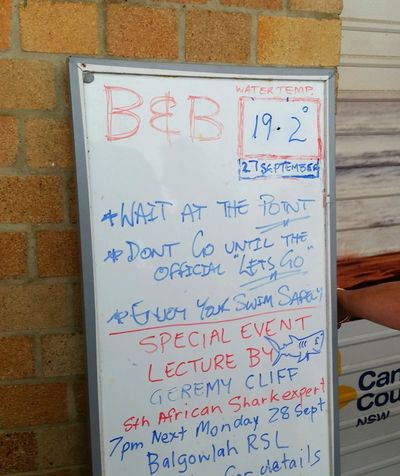 B&B
WATER TEMP.
19.2°
27 SEPTEMBER
*WAIT AT THE POINT
*DONT GO UNTIL THE
OFFICIAL "LETS GO"
*ENJOY YOUR SWIM SAFELY
SPECIAL EVENT
LECTURE BY
GEREMY CLIFF
Sth African Shark expert
7pm Next Monday 28 Sept
Balgowlah RSL
for details
Can
Cou
NSW